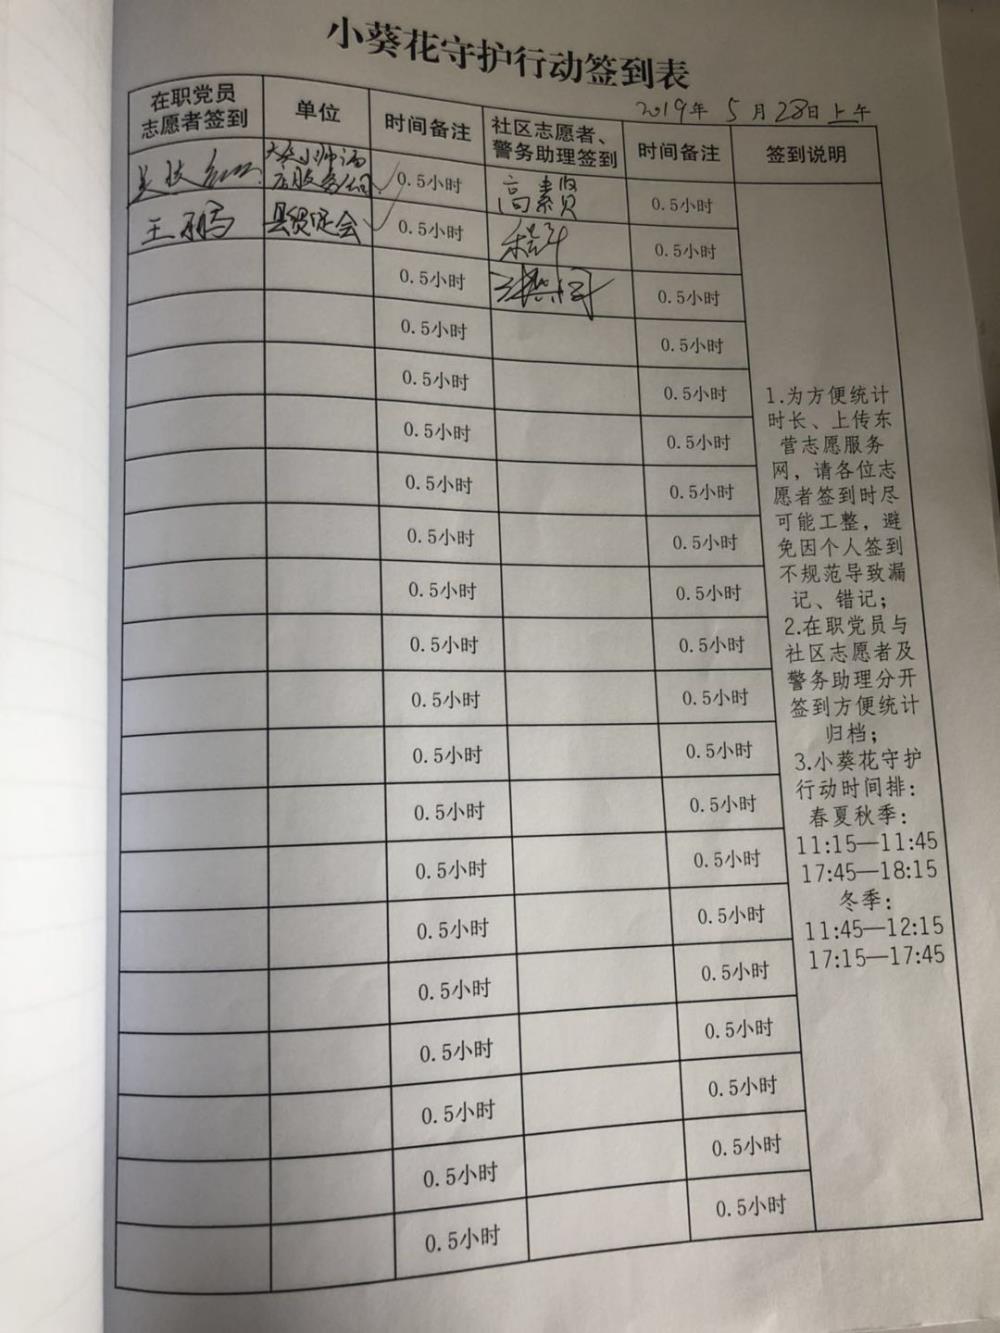 小葵花守护行动签到表
2019年 5月28日上午
在职党员
志愿者签到
单位
时间备注
社区志愿者、
警务助理签到
时间备注
签到说明
0.5小时
高素贤
0.5小时
王鹏
0.5小时
0.5小时
0.5小时
0.5小时
0.5小时
0.5小时
0.5小时
0.5小时
0.5小时
0.5小时
0.5小时
0.5小时
0.5小时
0.5小时
0.5小时
0.5小时
0.5小时
0.5小时
0.5小时
0.5小时
0.5小时
0.5小时
0.5小时
0.5小时
0.5小时
0.5小时
0.5小时
0.5小时
0.5小时
0.5小时
0.5小时
0.5小时
0.5小时
0.5小时
0.5小时
0.5小时
0.5小时
0.5小时
0.5小时
0.5小时
1.为方便统计
时长、上传东
营志愿服务
网，请各位志
愿者签到时尽
可能工整，避
免因个人签到
不规范导致漏
记、错记；
2.在职党员与
社区志愿者及
警务助理分开
签到方便统计
归档；
3.小葵花守护
行动时间排：
春夏秋季：
11:15—11:45
17:45—18:15
冬季：
11:45—12:15
17:15—17:45